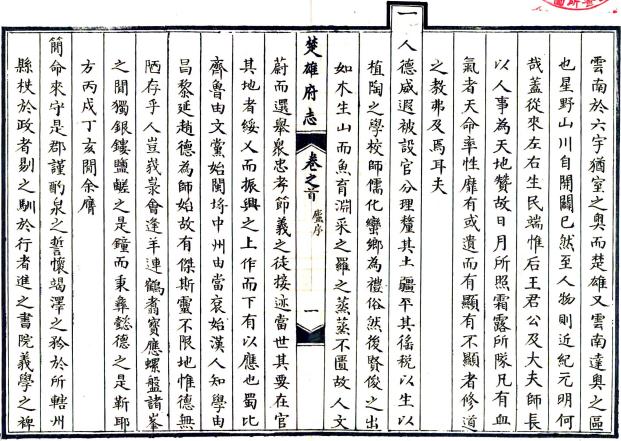 雲南於六宇猶室之奧而楚雄又雲南達奧之區
也星野山川自開闢已然至人物則近紀元明何
哉蓋從來左右生民端惟后王君公及大夫師長
以人事為天地贊故日月所照霜露所隊凡有血
氣者天命率性靡有或遺而有顯有不顯者修道
之教弗及焉耳夫
一人德威遐被設官分理釐其土疆平其徭稅以生以
植陶之學校師儒化蠻鄉為禮俗然後賢俊之出
如木生山而魚育淵采之羅之蒸蒸不匱故人文
楚雄府志 卷之首 盧序 一
蔚而選舉眾忠孝節義之徒接迹當世其要在官
其地者綏乂而振興之上作而下有以應也蜀比
齊魯由文黨始閩埒中州由常袞始漢人知學由
昌黎延趙德為師始故有傑斯靈不限地惟德無
陋存乎人豈峩㟲會逢羊連鶴翥寶應螺盤諸峯
之間獨銀鏤鹽鹺之是鐘而秉彝懿德之是靳耶
方丙戌丁亥間余膺
簡命來守是郡謹酌泉之誓懷竭澤之矜於所轄州
縣扶於政者剔之馴於行者進之書院義學之裨